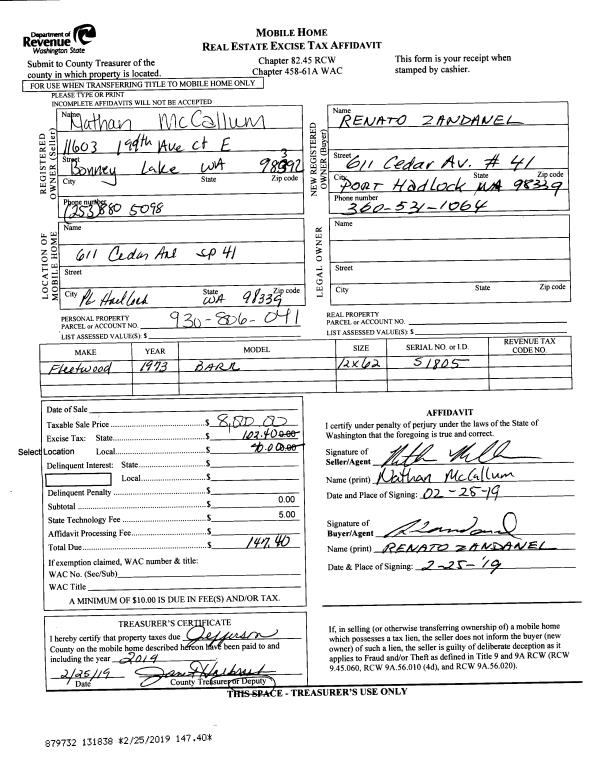 Department of
Revenue
Washington State
MOBILE HOME
REAL ESTATE EXCISE TAX AFFIDAVIT
Submit to County Treasurer of the
county in which property is located.
Chapter 82.45 RCW
Chapter 458-61A WAC
This form is your receipt when
stamped by cashier.
FOR USE WHEN TRANSFERRING TITLE TO MOBILE HOME ONLY
PLEASE TYPE OR PRINT
INCOMPLETE AFFIDAVITS WILL NOT BE ACCEPTED
REGISTERED
OWNER (Seller)
Name Nathan McCallum
11603 199th Ave ct E
Street Bonney Lake WA
City State Zip code
Phone number
(253) 880 5098
NEW REGISTERED
OWNER (Buyer)
Name
RENATO ZANDANEL
Street 611 Cedar Av. # 41
City PORT Hadlock WA 98339
State Zip code
Phone number
360-531-1064
LOCATION OF
MOBILE HOME
Name
611 Cedar Ave sp 41
Street
City Pt Hadlock State WA 98339 Zip code
LEGAL OWNER
Name
Street
City State Zip code
PERSONAL PROPERTY
PARCEL or ACCOUNT NO. 930-806-041
LIST ASSESSED VALUE(S): $
REAL PROPERTY
PARCEL or ACCOUNT NO.
LIST ASSESSED VALUE(S): $
MAKE YEAR MODEL SIZE SERIAL NO. or I.D. REVENUE TAX CODE NO.
Fleetwood 1973 BARR 12x62 S1805
Date of Sale
Taxable Sale Price $ 8,000.00
Excise Tax: State $ 102.40 0.00
Select Location Local $ 40.00 0.00
Delinquent Interest: State $
Local $
Delinquent Penalty $
Subtotal $ 0.00
State Technology Fee $ 5.00
Affidavit Processing Fee $
Total Due $ 147.40
If exemption claimed, WAC number & title:
WAC No. (Sec/Sub)
WAC Title
A MINIMUM OF $10.00 IS DUE IN FEE(S) AND/OR TAX.
AFFIDAVIT
I certify under penalty of perjury under the laws of the State of
Washington that the foregoing is true and correct.
Signature of
Seller/Agent
Name (print) Nathan McCallum
Date and Place of Signing: 02-25-19
Signature of
Buyer/Agent
Name (print) RENATO ZANDANEL
Date & Place of Signing: 2-25-'19
TREASURER'S CERTIFICATE
I hereby certify that property taxes due Jefferson
County on the mobile home described hereon have been paid to and
including the year 2019
2/25/19
Date County Treasurer or Deputy
If, in selling (or otherwise transferring ownership of) a mobile home
which possesses a tax lien, the seller does not inform the buyer (new
owner) of such a lien, the seller is guilty of deliberate deception as it
applies to Fraud and/or Theft as defined in Title 9 and 9A RCW (RCW
9.45.060, RCW 9A.56.010 (4d), and RCW 9A.56.020).
THIS SPACE - TREASURER'S USE ONLY
879732 131838 *2/25/2019 147.40*